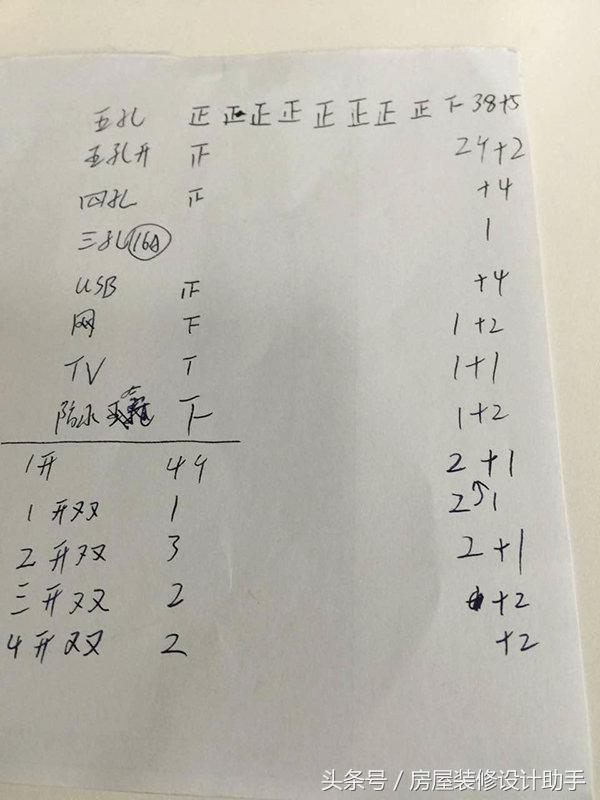 五孔 正 正 正 正 正 正 正 正 下 38+5
五孔开 正 24+2
四孔 正 +4
三孔 16A 1
USB 正 +4
网 下 1+2
TV T 1+1
防水 下 1+2
1开 44 2+1
1开双 1 2 1
2开双 3 2+1
三开双 2 +2
4开双 2 +2
头条号 / 房屋装修设计助手